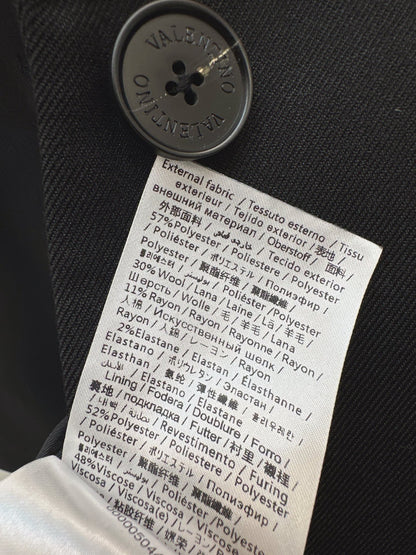 VALENTINO
VALENTINO
External fabric / Tessuto esterno / Tissu
extérieur / Tejido exterior / 表地 /
внешний материал / Oberstoff / 面料 /
外部面料 / خارجي قماش / Tecido exterior
57%Polyester / Poliestere / Polyester
/ Poliéster / ポリエステル / полиэфир /
Polyester / 聚酯纤维 / 聚酯纖維 /
폴리에스터 / بوليستر / Poliéster / Polyester
30%Wool / Lana / Laine / Lã / 羊毛 /
Шерсть / Wolle / 毛 / 羊毛 / Lana
11%Rayon / Rayon / Rayonne / Rayón /
人棉 / Искусственный шелк /
Rayon / 人綿 / レーヨン / Rayon
2%Elastane / Elastan / Elasthanne /
Elastano / ポリウレタン / Эластан /
Elasthan / 氨纶 / 彈性纖維 / 폴리우레탄
/ Elastano / Elastane
Lining / Fodera / Doublure / Forro /
裏地 / подкладка / Futter / 村里 / 襯裡
/ 안감 / / Revestimento / Furing
52%Polyester / Poliestere / Polyester
/ Poliéster / ポリエステル / полиэфир /
Polyester / 聚酯纤维 / 聚酯纖維 /
폴리에스터 / بوليستر / Poliéster / Polyester
48%Viscose / Viscosa / Viscose /
Viscosa / Viscose(e) / レーヨン /
/ Viskose / 粘胶纤维 / 嫘縈 /